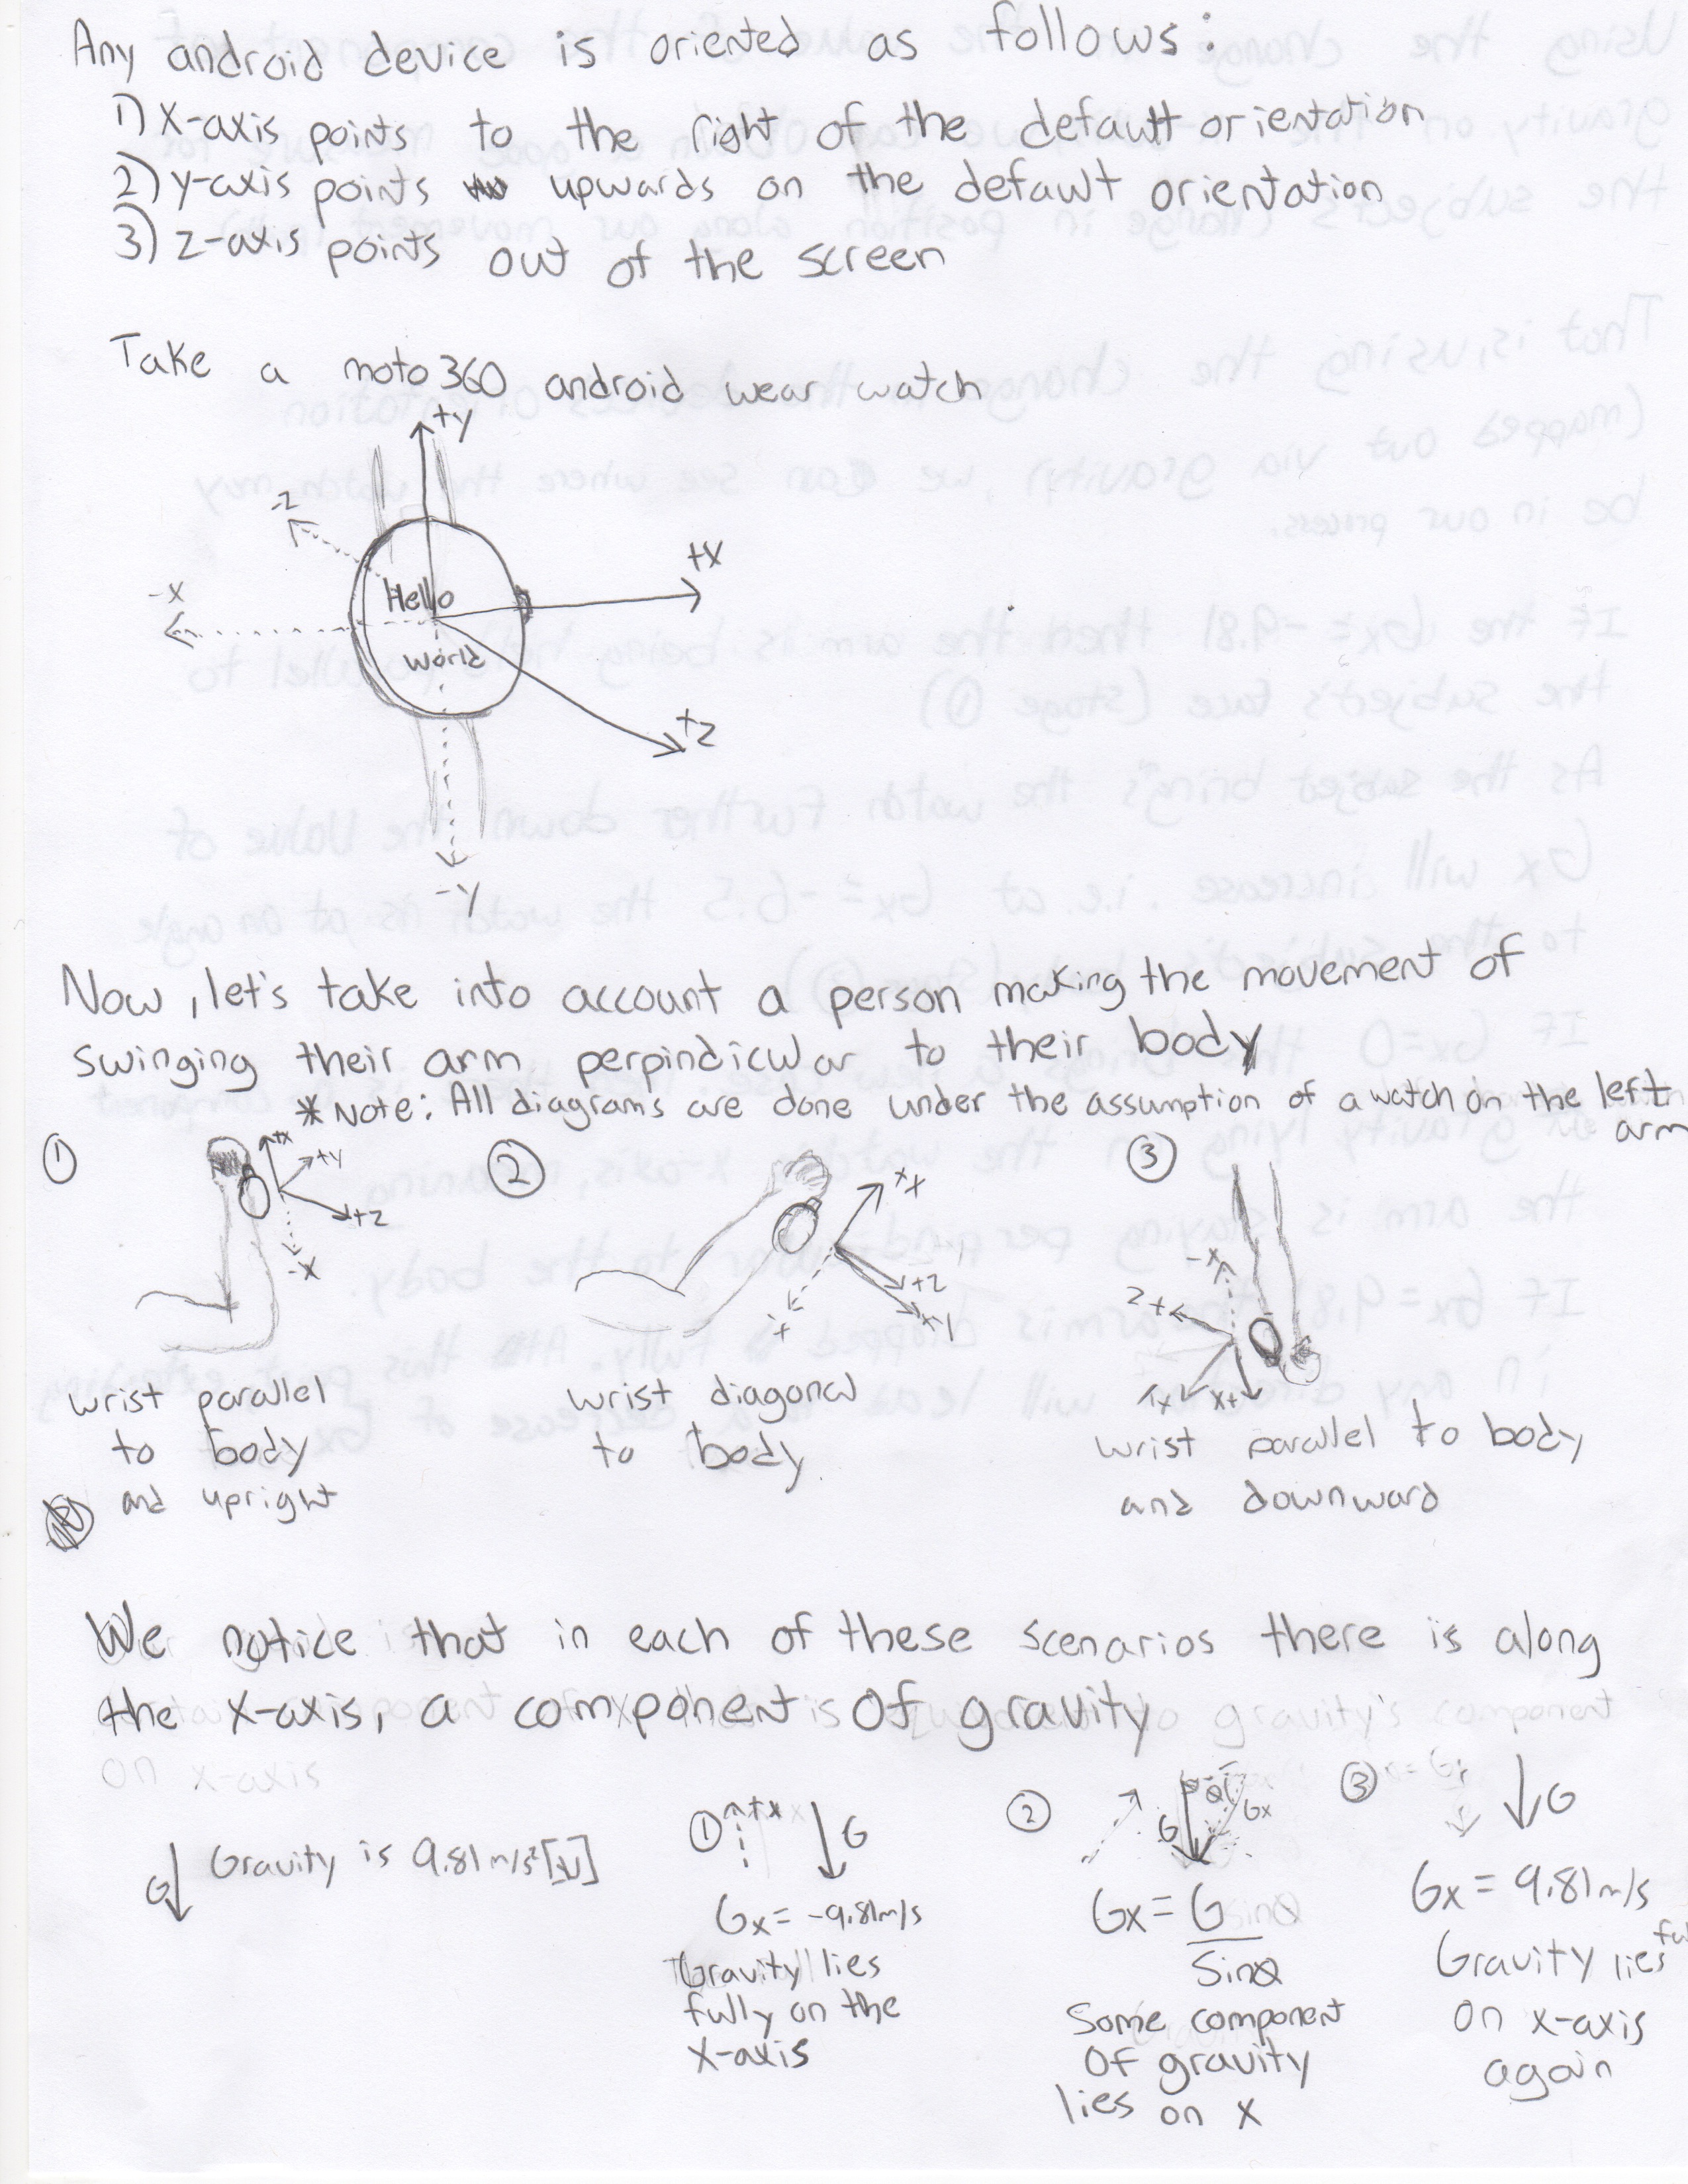 Any android device is oriented as follows:
1) X-axis points to the right of the default orientation
2) y-axis points upwards on the default orientation
3) z-axis points out of the screen
Take a moto 360 android wear watch
+y
-z
+x
-x
Hello
World
+z
-y
Now, let's take into account a person making the movement of
swinging their arm perpindicular to their body
*Note: All diagrams are done under the assumption of a watch on the left
arm
① +x +y +z -x
② +x +z +y -x
③ -x z+ x+
wrist parallel
to body
and upright
wrist diagonal
to body
wrist parallel to body
and downward
We notice that in each of these scenarios there is along
the x-axis, a component of gravity
G↓ Gravity is 9.81m/s²[↓]
① +x G
Gx = -9.81m/s
Gravity lies
fully on the
x-axis
② G θ Gx
Gx = G
Sinθ
Some component
of gravity
lies on x
③ G
Gx = 9.81m/s
Gravity lies
on x-axis
again